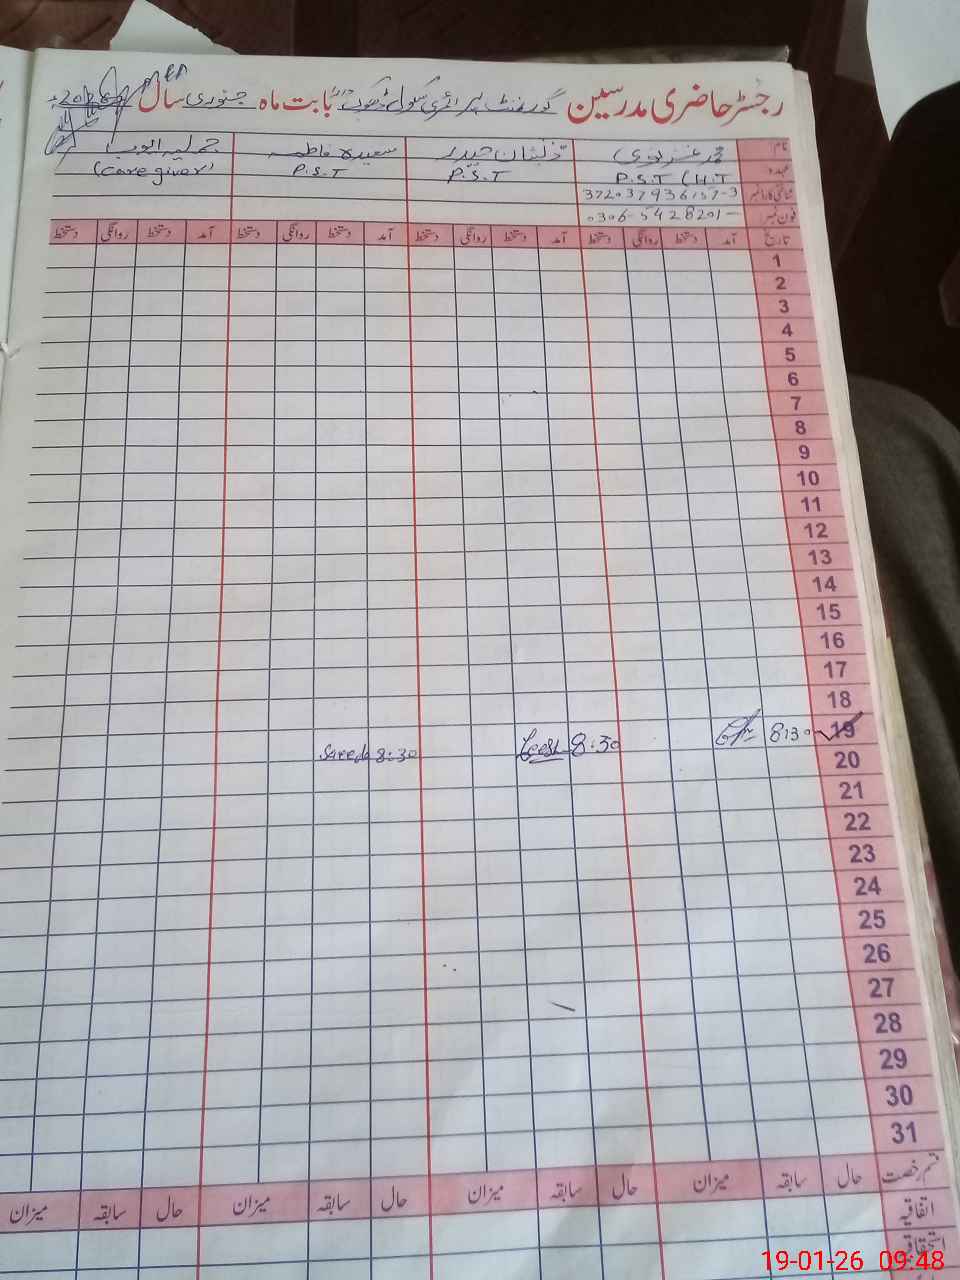 رجسٹر حاضری مدرسین گورنمنٹ پرائمری سکول بابت ماہ جنوری سال 2026ء
نام محمد ذیشان حیدر سعیدہ فاطمہ جمیلہ ایوب
عہدہ P.S.T (H.T P.S.T P.S.T (Care giver)
شناختی کارڈ نمبر 372037936157-3
فون نمبر 0306-5428201
تاریخ آمد دستخط روانگی دستخط آمد دستخط روانگی دستخط آمد دستخط روانگی دستخط آمد دستخط روانگی دستخط
1
2
3
4
5
6
7
8
9
10
11
12
13
14
15
16
17
18
19 8:30 8:30 Saeeda 8:30
20
21
22
23
24
25
26
27
28
29
30
31
قسم رخصت حال سابقہ میزان حال سابقہ میزان حال سابقہ میزان حال سابقہ میزان
اتفاقیہ
استحقاقیہ
19-01-26 09:48